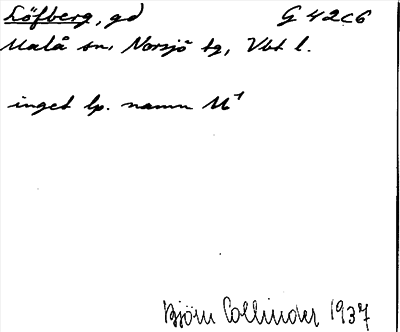 Löfberg, gd G 42c6
Malå sn, Norsjö tg, Vbt l.
inget lp. namn M¹
Björn Collinder 1937